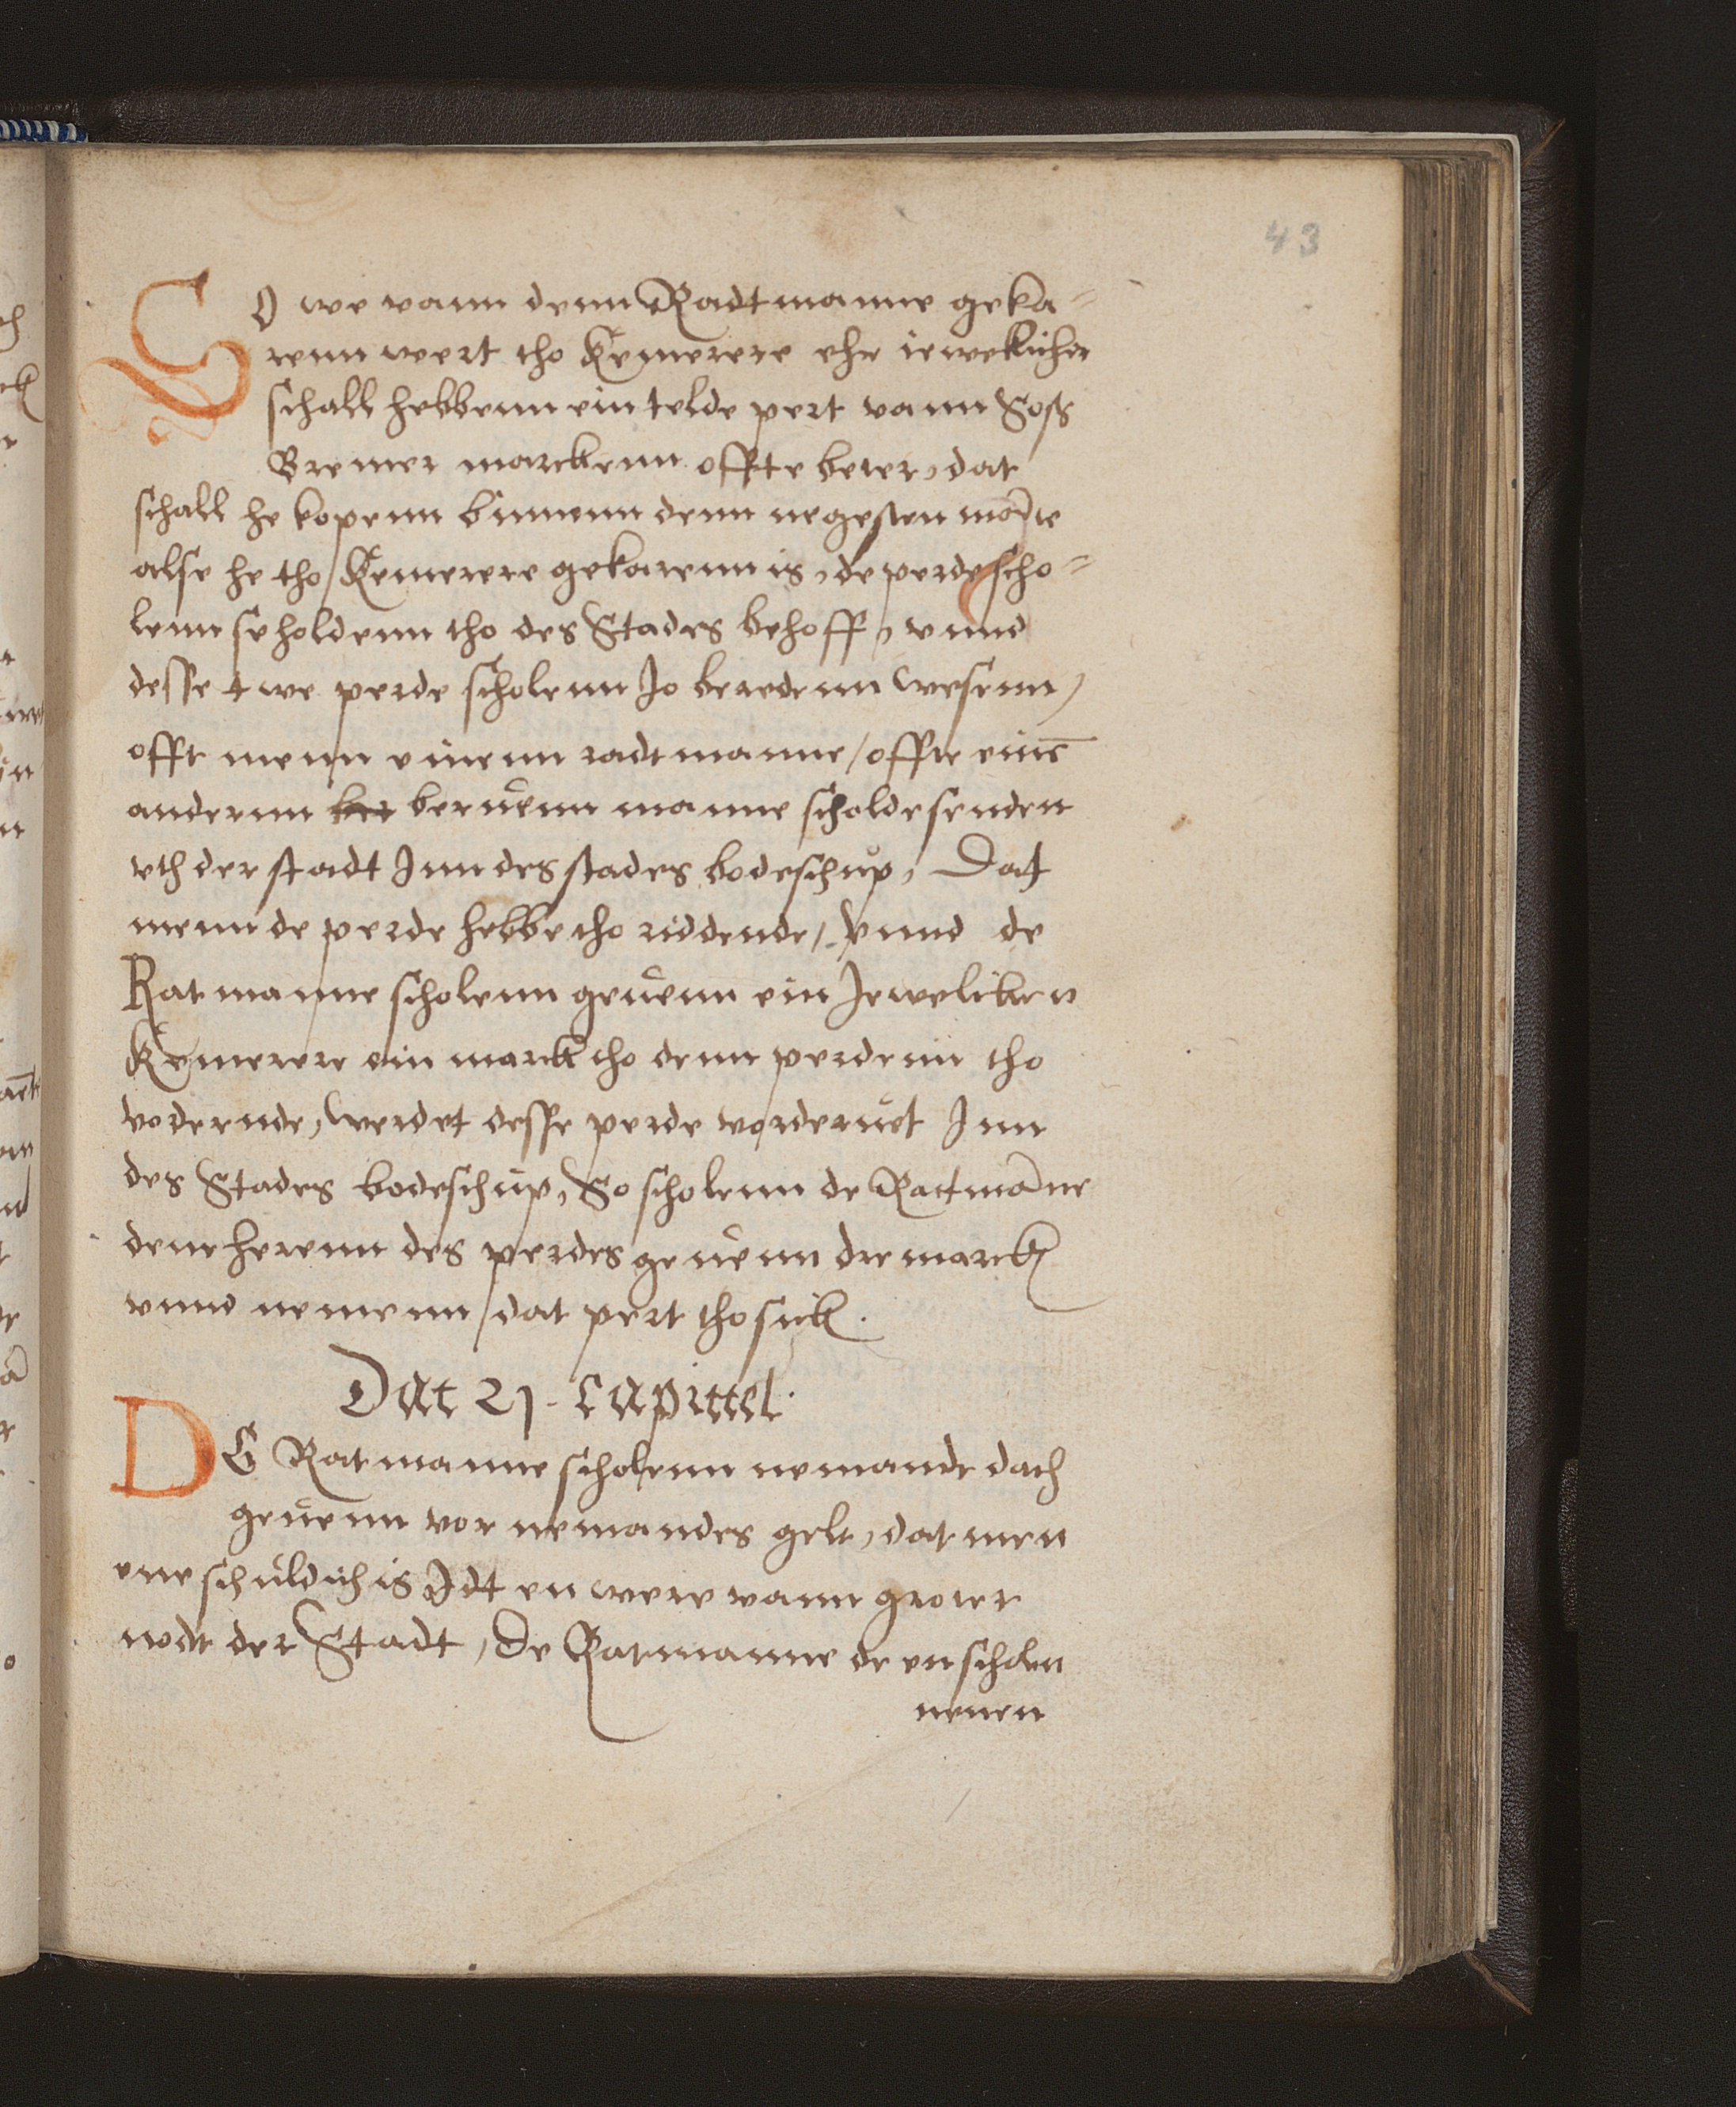 43
SO we vann denn Radtmanne geka⸗
renn wert tho Kemerere ehr iewelicher
schall hebbenn ein telde pert vann Soss
Bremer marckenn offte beter, dat
schall he kopenn binnenn denn negesten mãnte
alse he tho Kemerere gekarenn is, de perde scho⸗
lenn se holdenn tho des Stades behoff, vnnd
desse twe perde scholenn Jo beredenn wesenn,
offt menn einenn radtmanne / offte einẽ
anderenn beruenn manne scholde senden
vth der stadt Inn des stades bodeschup, Dat
menn de perde hebbe tho riddende, Vnnd de
Rat manne scholenn geuenn ein Jeweliken
Kemerere ein marck tho denn perdenn tho
voderende, werdet desse perde vorderuet Inn
des Stades bodeschup, So scholenn de Ratmãne
dene herenn des perdes geuenn dre marck
vnnd nemenn / dat pert tho sick.
Dat 21. Capittel.
DE Rat manne scholenn nemande dach
geuenn vor nemandes gelt, dat men
eme schuldich is Idt en were vann groter
nodt der Stadt, De Ratmanne de en scholen
nenen